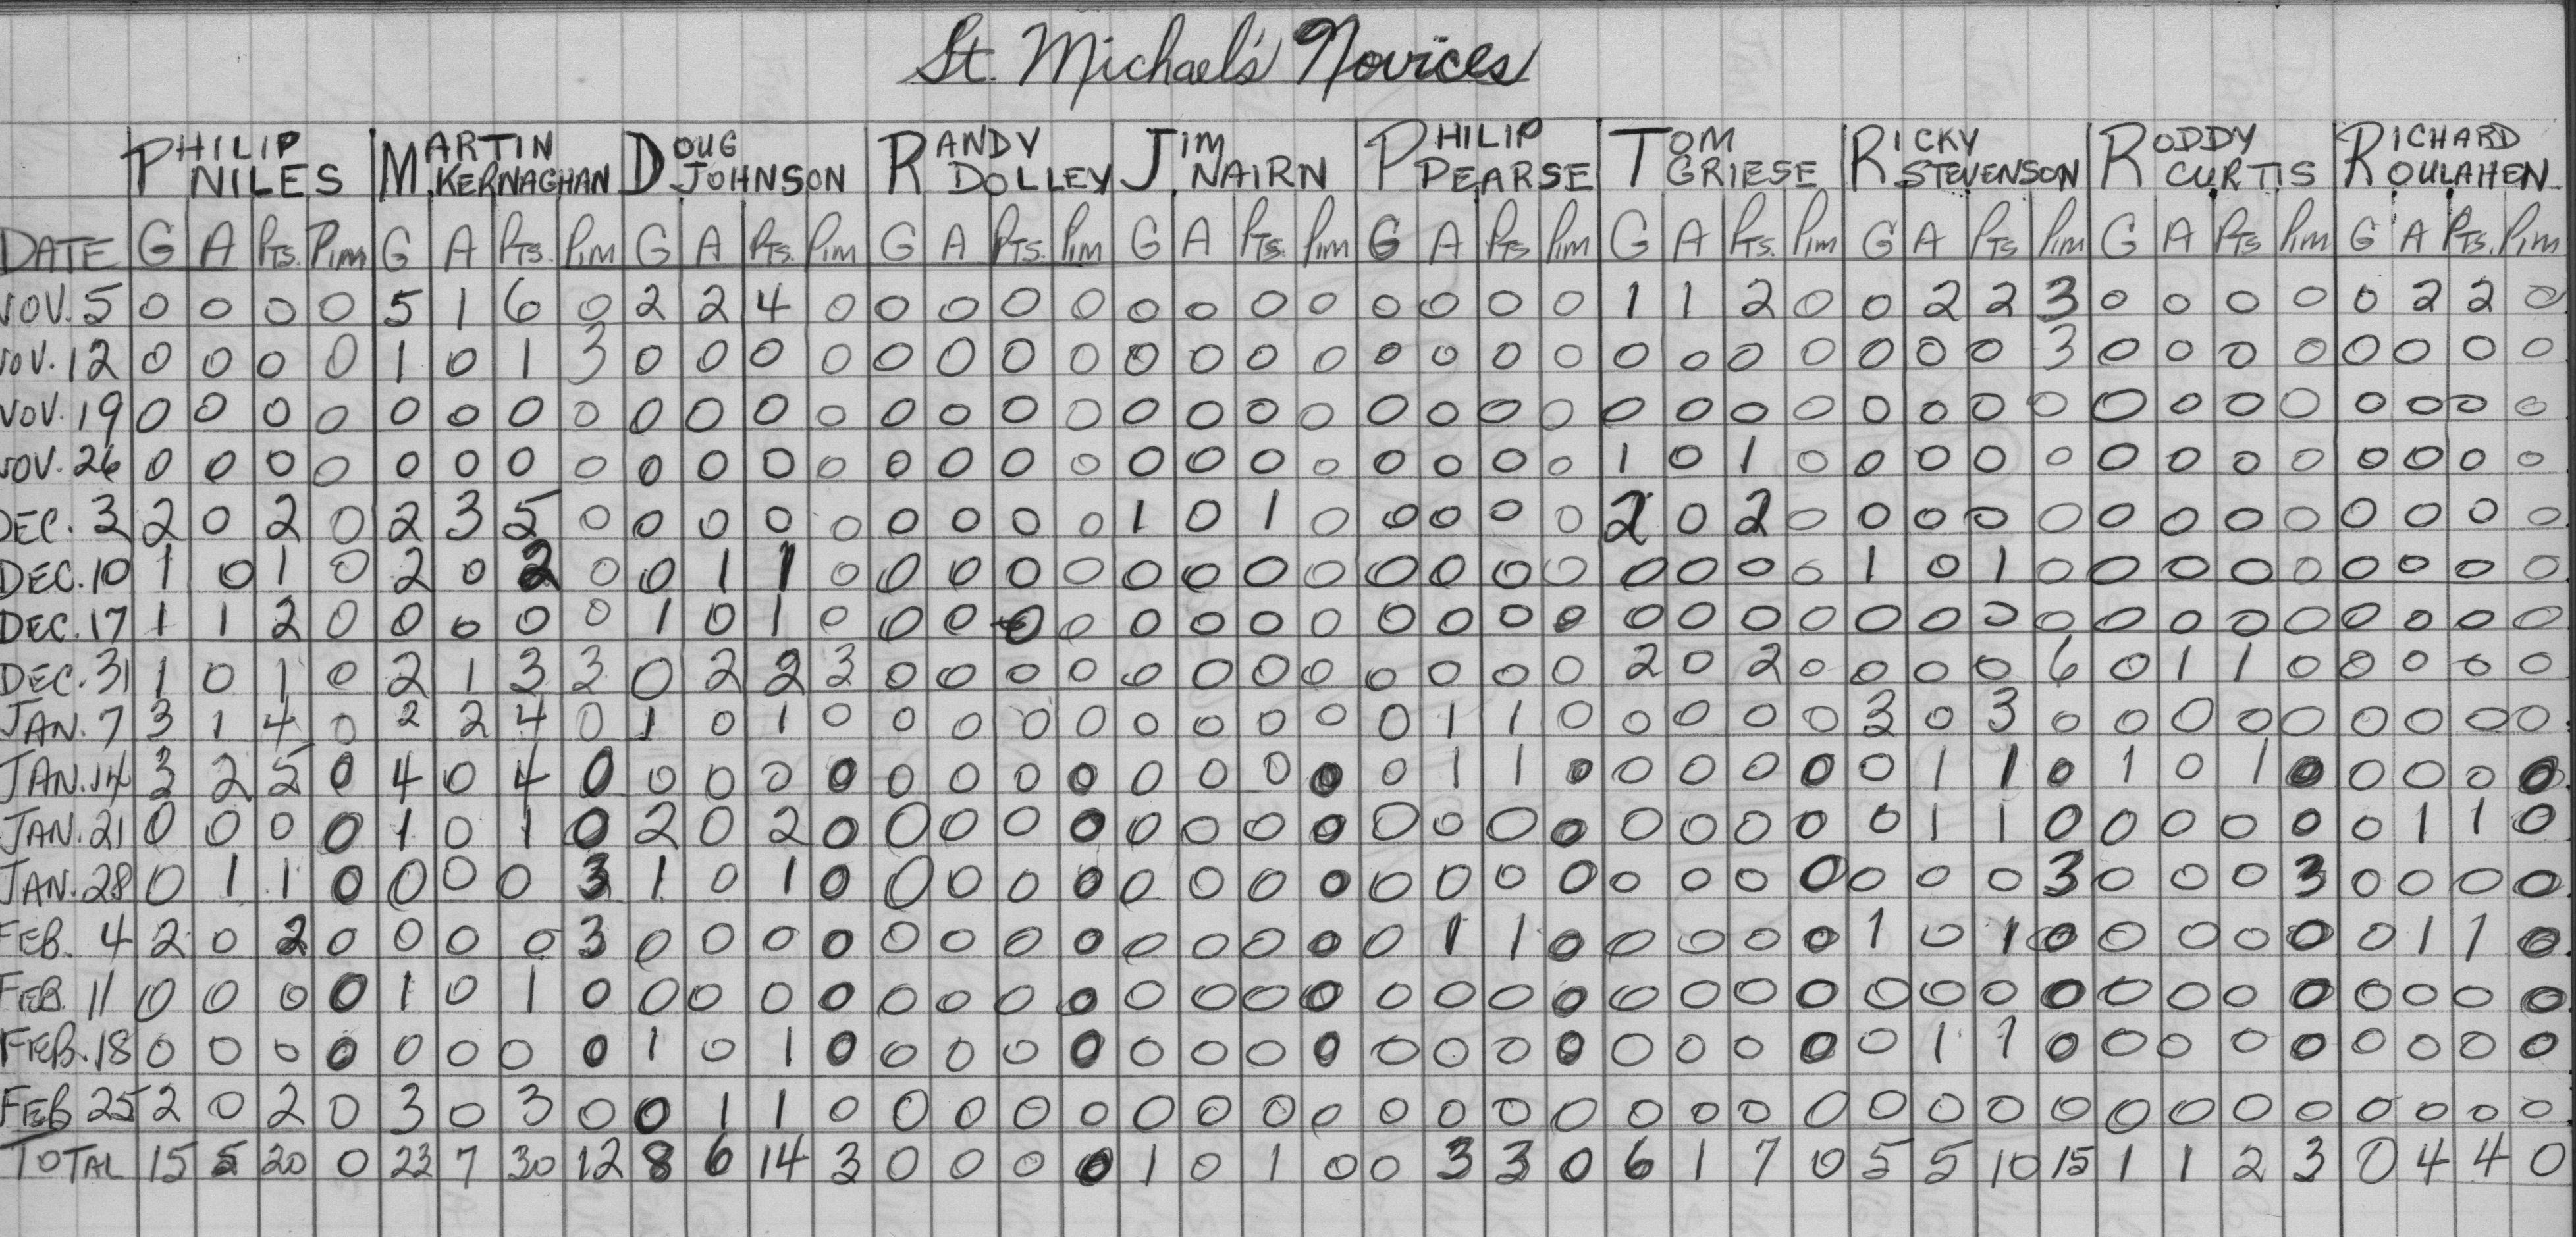 St. Michael's Novices
PHILIP NILES MARTIN KERNAGHAN DOUG JOHNSON RANDY DOLLEY JIM NAIRN PHILIP PEARSE TOM GRIESE RICKY STEVENSON RODDY CURTIS RICHARD ROULAHEN
DATE G A PTS. PIM G A PTS. PIM G A PTS. PIM G A PTS. PIM G A PTS. PIM G A PTS PIM G A PTS. PIM G A PTS PIM G A PTS PIM G A PTS. PIM
NOV. 5 0 0 0 0 5 1 6 0 2 2 4 0 0 0 0 0 0 0 0 0 0 0 0 0 1 1 2 0 0 2 2 3 0 0 0 0 0 2 2 0
NOV. 12 0 0 0 0 1 0 1 3 0 0 0 0 0 0 0 0 0 0 0 0 0 0 0 0 0 0 0 0 0 0 0 3 0 0 0 0 0 0 0 0
NOV. 19 0 0 0 0 0 0 0 0 0 0 0 0 0 0 0 0 0 0 0 0 0 0 0 0 0 0 0 0 0 0 0 0 0 0 0 0 0 0 0 0
NOV. 26 0 0 0 0 0 0 0 0 0 0 0 0 0 0 0 0 0 0 0 0 0 0 0 0 1 0 1 0 0 0 0 0 0 0 0 0 0 0 0 0
DEC. 3 2 0 2 0 2 3 5 0 0 0 0 0 0 0 0 0 1 0 1 0 0 0 0 0 2 0 2 0 0 0 0 0 0 0 0 0 0 0 0 0
DEC. 10 1 0 1 0 2 0 2 0 0 1 1 0 0 0 0 0 0 0 0 0 0 0 0 0 0 0 0 0 1 0 1 0 0 0 0 0 0 0 0 0
DEC. 17 1 1 2 0 0 0 0 0 1 0 1 0 0 0 0 0 0 0 0 0 0 0 0 0 0 0 0 0 0 0 0 0 0 0 0 0 0 0 0 0
DEC. 31 1 0 1 0 2 1 3 3 0 2 2 3 0 0 0 0 0 0 0 0 0 0 0 0 2 0 2 0 0 0 0 6 0 1 1 0 0 0 0 0
JAN. 7 3 1 4 0 2 2 4 0 1 0 1 0 0 0 0 0 0 0 0 0 0 1 1 0 0 0 0 0 3 0 3 0 0 0 0 0 0 0 0 0
JAN. 14 3 2 5 0 4 0 4 0 0 0 0 0 0 0 0 0 0 0 0 0 0 1 1 0 0 0 0 0 0 1 1 0 1 0 1 0 0 0 0 0
JAN. 21 0 0 0 0 1 0 1 0 2 0 2 0 0 0 0 0 0 0 0 0 0 0 0 0 0 0 0 0 0 1 1 0 0 0 0 0 0 1 1 0
JAN. 28 0 1 1 0 0 0 0 3 1 0 1 0 0 0 0 0 0 0 0 0 0 0 0 0 0 0 0 0 0 0 0 3 0 0 0 3 0 0 0 0
FEB. 4 2 0 2 0 0 0 0 3 0 0 0 0 0 0 0 0 0 0 0 0 0 1 1 0 0 0 0 0 1 0 1 0 0 0 0 0 0 1 1 0
FEB. 11 0 0 0 0 1 0 1 0 0 0 0 0 0 0 0 0 0 0 0 0 0 0 0 0 0 0 0 0 0 0 0 0 0 0 0 0 0 0 0 0
FEB. 18 0 0 0 0 0 0 0 0 1 0 1 0 0 0 0 0 0 0 0 0 0 0 0 0 0 0 0 0 0 1 1 0 0 0 0 0 0 0 0 0
FEB 25 2 0 2 0 3 0 3 0 0 1 1 0 0 0 0 0 0 0 0 0 0 0 0 0 0 0 0 0 0 0 0 0 0 0 0 0 0 0 0 0
TOTAL 15 5 20 0 23 7 30 12 8 6 14 3 0 0 0 0 1 0 1 0 0 3 3 0 6 1 7 0 5 5 10 15 1 1 2 3 0 4 4 0